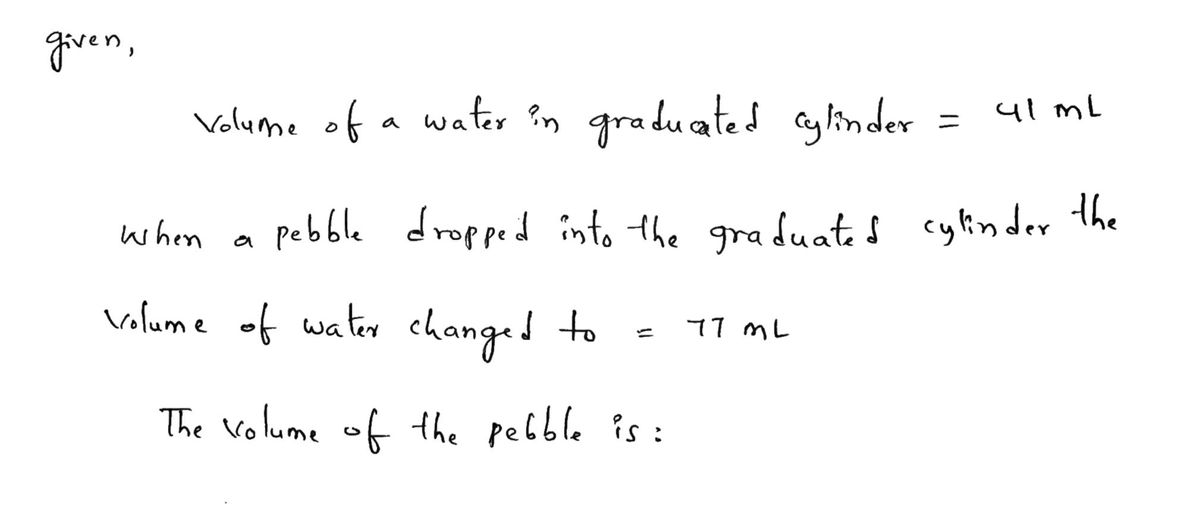 given,
Volume of a water in graduated cylinder = 41 mL
when a pebble dropped into the graduated cylinder the
volume of water changed to = 77 mL
The volume of the pebble is :